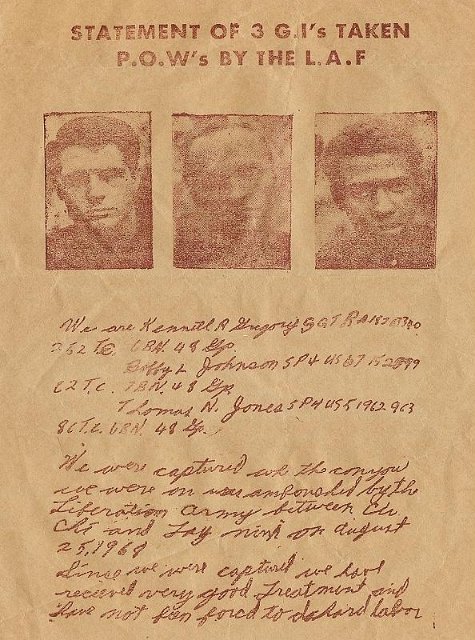 STATEMENT OF 3 G.I's TAKEN
P.O.W's BY THE L.A.F
We are Kenneth R Gregory SGT
252 TC BN. 48 Gp.
Bobby L Johnson SP4 US 67
62 T.C. BN. 48 Gp
Thomas N. Jones SP4 US 51962963
86 T.C. BN. 48 Gp.
We were captured the convoy
we were on was by the
Liberation Army between Cu
Chi and Tay ninh on august
25, 1968
Since we were captured we have
received very good treatment and
have not ben forced to do hard labor